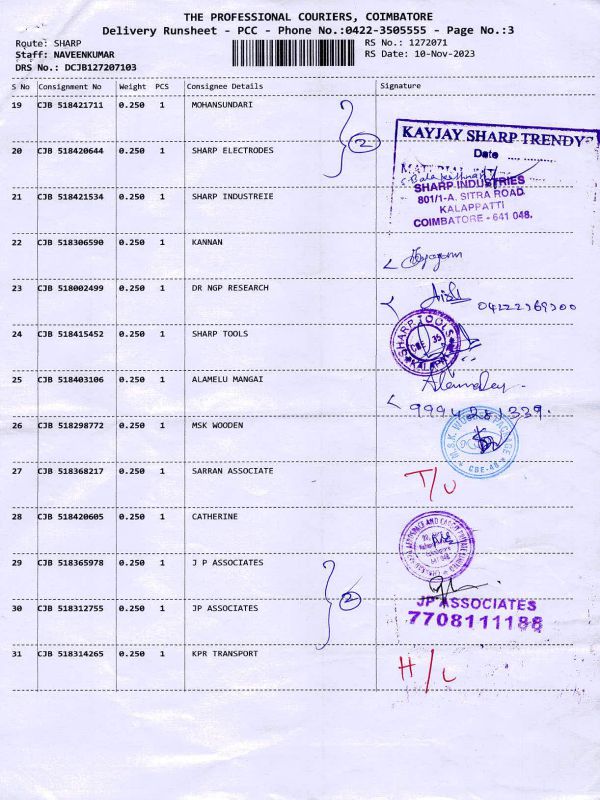 THE PROFESSIONAL COURIERS, COIMBATORE
Delivery Runsheet - PCC - Phone No.:0422-3505555 - Page No.:3
Route: SHARP
RS No.: 1272071
Staff: NAVEENKUMAR
RS Date: 10-Nov-2023
DRS No.: DCJB127207103
S No Consignment No Weight PCS Consignee Details Signature
19 CJB 518421711 0.250 1 MOHANSUNDARI
2
KAYJAY SHARP TRENDY
Date
20 CJB 518420644 0.250 1 SHARP ELECTRODES
SHARP INDUSTRIES
801/1-A, SITRA ROAD
KALAPPATTI
COIMBATORE - 641 048.
21 CJB 518421534 0.250 1 SHARP INDUSTREIE
22 CJB 518306590 0.250 1 KANNAN
23 CJB 518002499 0.250 1 DR NGP RESEARCH
24 CJB 518415452 0.250 1 SHARP TOOLS
SHARP TOOLS
CBE 35
25 CJB 518403106 0.250 1 ALAMELU MANGAI
9994281339.
26 CJB 518298772 0.250 1 MSK WOODEN
CBE-48
27 CJB 518368217 0.250 1 SARRAN ASSOCIATE
T/U
28 CJB 518420605 0.250 1 CATHERINE
29 CJB 518365978 0.250 1 J P ASSOCIATES
2
30 CJB 518312755 0.250 1 JP ASSOCIATES
JP ASSOCIATES
7708111188
31 CJB 518314265 0.250 1 KPR TRANSPORT
H/L